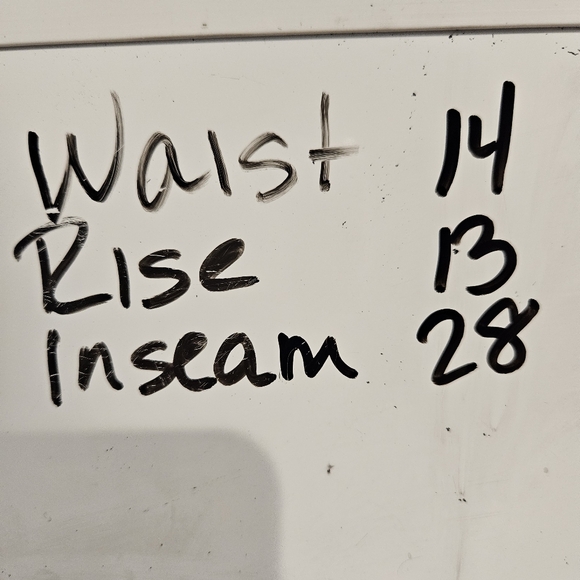 Waist 14
Rise 13
Inseam 28